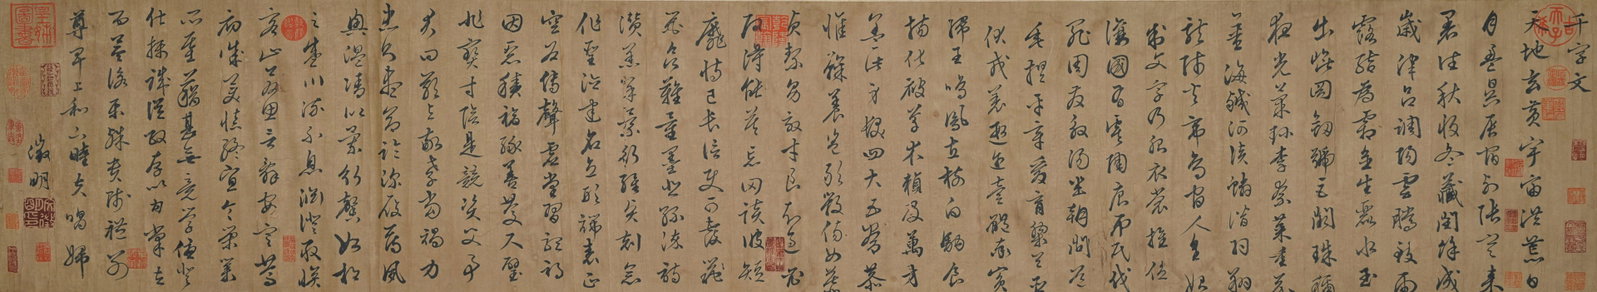 千字文
天地玄黃宇宙洪荒日
月盈昃辰宿列張寒來
暑往秋收冬藏閏餘成
歲律呂調陽雲騰致雨
露結為霜金生麗水玉
出崑岡劒號巨闕珠稱
夜光菓珎李柰菜重芥
薑海鹹河淡鱗潛羽翔
龍師火帝鳥官人皇始
制文字乃服衣裳推位
讓國有虞陶唐弔民伐
罪周發殷湯坐朝問道
垂拱平章愛育黎首臣
伏戎羌遐邇壹體率賓
歸王鳴鳳在樹白駒食
場化被草木賴及萬方
盖此身髮四大五常恭
惟鞠養豈敢毀傷女慕
貞絜男效才良知過必
改得能莫忘罔談彼短
靡恃己長信使可覆器
欲難量墨悲絲染詩
讚羔羊景行維賢剋念
作聖德建名立形端表正
空谷傳聲虛堂習聽禍
因惡積福緣善慶尺璧
非寶寸陰是競資父事
君曰嚴與敬孝當竭力
忠則盡命臨深履薄夙
興溫凊似蘭斯馨如松
之盛川流不息淵澄取暎
容止若思言辭安定篤
初誠美慎終宜令榮業
所基籍甚無竟學優登
仕攝職從政存以甘棠去
而益詠樂殊貴賤禮別
尊卑上和下睦夫唱婦
徵明